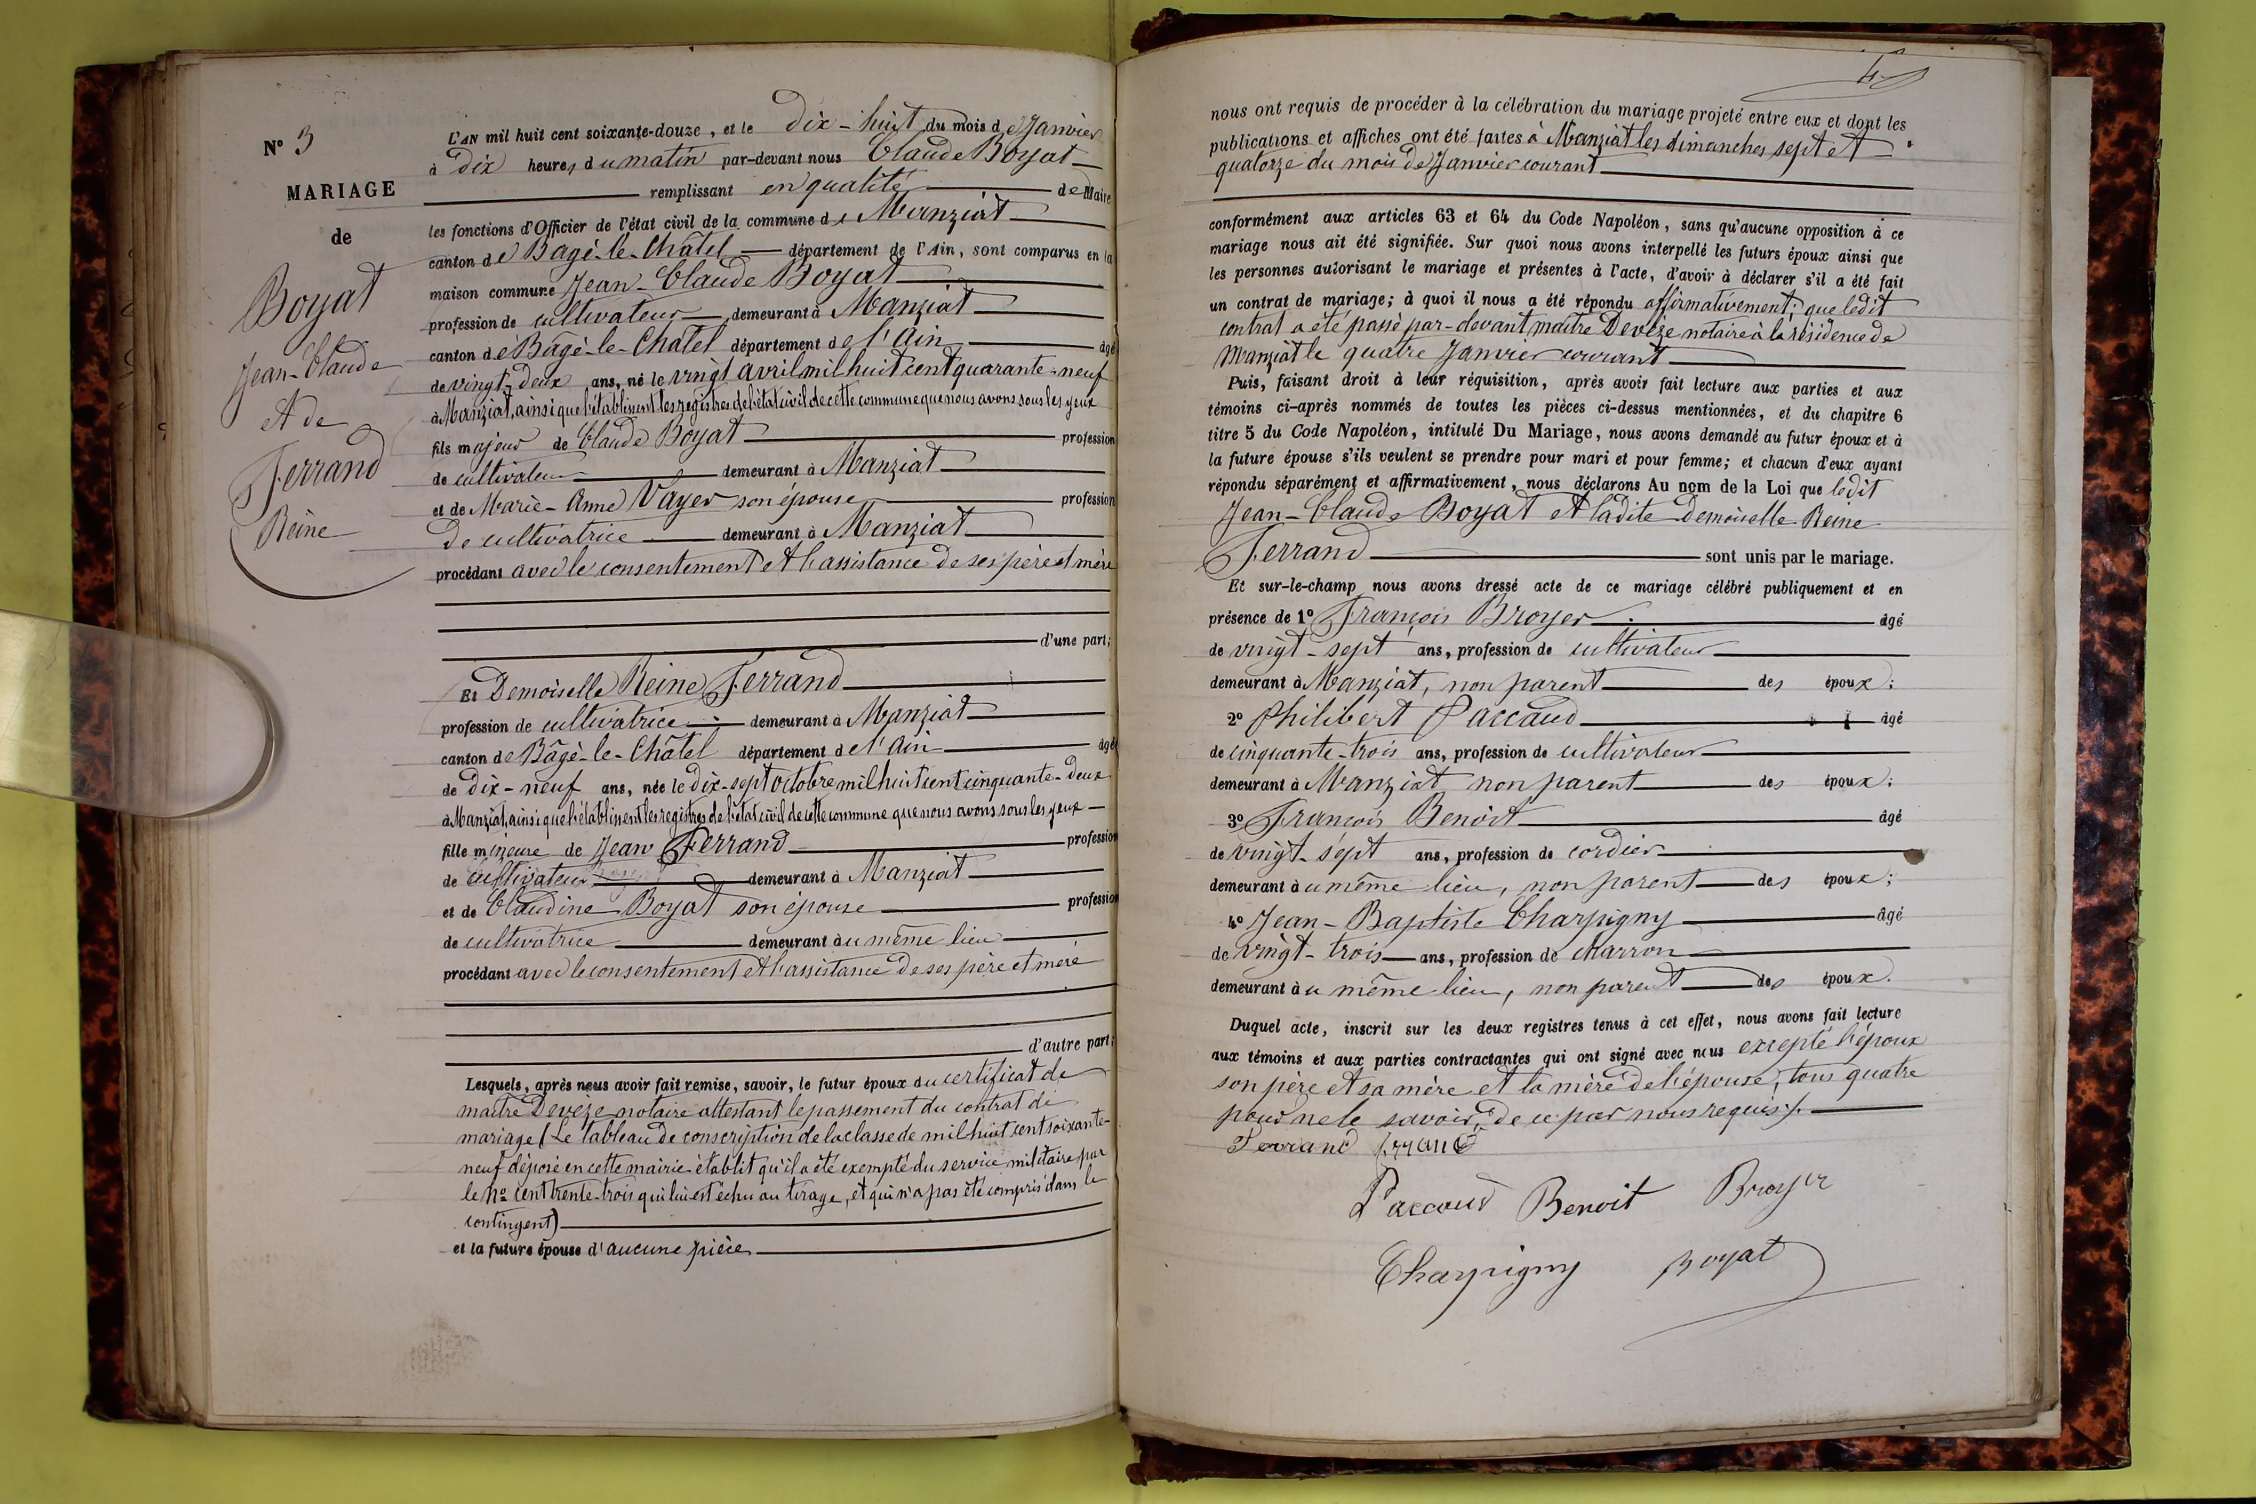 N° 3
MARIAGE
de
Boyat
Jean-Claude
et de
Ferrand
Reine
L'AN mil huit cent soixante-douze, et le dix-huit du mois de Janvier
à dix heures du matin par-devant nous Claude Boyat
remplissant en qualité de Maire
les fonctions d'Officier de l'état civil de la commune de Manziat
canton de Bagé-le-Châtel département de l'Ain, sont comparus en la
maison commune Jean-Claude Boyat
profession de cultivateur demeurant à Manziat
canton de Bâgé-le-Châtel département de l'Ain âgé
de vingt-deux ans, né le vingt avril mil huit cent quarante-neuf
à Manziat, ainsi que l'établissent les registres de l'état civil de cette commune que nous avons sous les yeux
fils majeur de Claude Boyat profession
de cultivateur demeurant à Manziat
et de Marie-Anne Vayer son épouse profession
de cultivatrice demeurant à Manziat
procédant avec le consentement et l'assistance de ses père et mère
d'une part;
Et Demoiselle Reine Ferrand
profession de cultivatrice demeurant à Manziat
canton de Bâgé-le-Châtel département de l'Ain âgée
de dix-neuf ans, née le dix-sept octobre mil huit cent cinquante-deux
à Manziat, ainsi que l'établissent les registres de l'état civil de cette commune que nous avons sous les yeux
fille mineure de Jean Ferrand profession
de cultivateur demeurant à Manziat
et de Claudine Boyat son épouse profession
de cultivatrice demeurant au même lieu
procédant avec le consentement et l'assistance de ses père et mère
d'autre part;
Lesquels, après nous avoir fait remise, savoir, le futur époux du certificat de
maître Devèze notaire attestant le passement du contrat de
mariage (Le tableau de conscription de la classe de mil huit cent soixante-
neuf déposé en cette mairie établit qu'il a été exempté du service militaire par
le n° cent trente-trois qui lui est échu au tirage, et qui n'a pas été compris dans le
contingent)
et la future épouse d'aucune pièce
4
nous ont requis de procéder à la célébration du mariage projeté entre eux et dont les
publications et affiches ont été faites à Manziat les dimanches sept et
quatorze du mois de Janvier courant
conformément aux articles 63 et 64 du Code Napoléon, sans qu'aucune opposition à ce
mariage nous ait été signifiée. Sur quoi nous avons interpellé les futurs époux ainsi que
les personnes autorisant le mariage et présentes à l'acte, d'avoir à déclarer s'il a été fait
un contrat de mariage; à quoi il nous a été répondu affirmativement; que ledit
contrat a été passé par-devant maître Devèze notaire à la résidence de
Manziat le quatre Janvier courant
Puis, faisant droit à leur réquisition, après avoir fait lecture aux parties et aux
témoins ci-après nommés de toutes les pièces ci-dessus mentionnées, et du chapitre 6
titre 5 du Code Napoléon, intitulé Du Mariage, nous avons demandé au futur époux et à
la future épouse s'ils veulent se prendre pour mari et pour femme; et chacun d'eux ayant
répondu séparément et affirmativement, nous déclarons Au nom de la Loi que ledit
Jean-Claude Boyat et ladite Demoiselle Reine
Ferrand sont unis par le mariage.
Et sur-le-champ nous avons dressé acte de ce mariage célébré publiquement et en
présence de 1° François Broyer âgé
de vingt-sept ans, profession de cultivateur
demeurant à Manziat, non parent des époux;
2° Philibert Paccaud âgé
de cinquante-trois ans, profession de cultivateur
demeurant à Manziat non parent des époux;
3° François Benoit âgé
de vingt-sept ans, profession de cordier
demeurant au même lieu, non parent des époux;
4° Jean-Baptiste Charpigny âgé
de vingt-trois ans, profession de charron
demeurant au même lieu, non parent des époux.
Duquel acte, inscrit sur les deux registres tenus à cet effet, nous avons fait lecture
aux témoins et aux parties contractantes qui ont signé avec nous excepté l'époux
son père et sa mère et la mère de l'épouse, tous quatre
pour ne le savoir, de ce par nous requis ./.
Ferrand ferrand
Paccaud Benoit Broyer
Charpigny Boyat